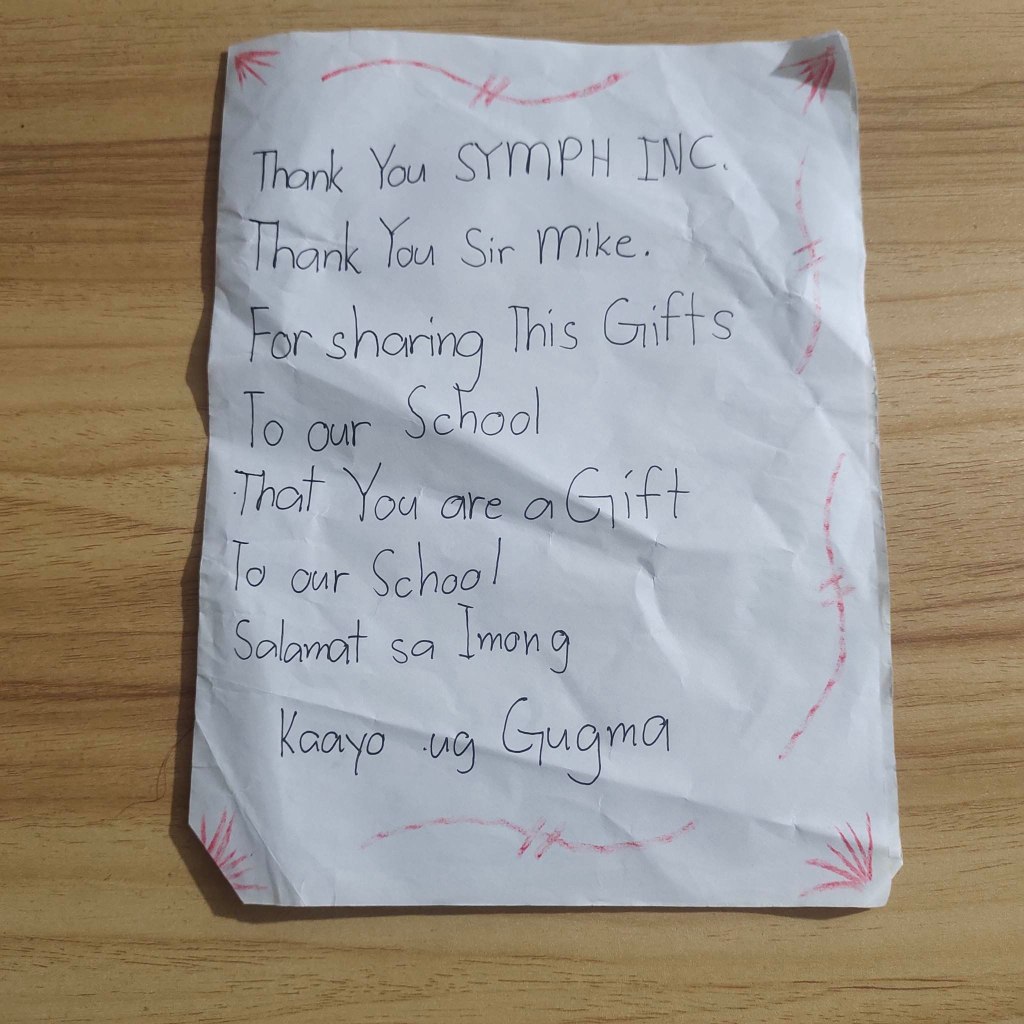 Thank You SYMPH INC.
Thank You Sir Mike.
For sharing This Gifts
To our School
That You are a Gift
To our School
Salamat sa Imong
Kaayo ug Gugma